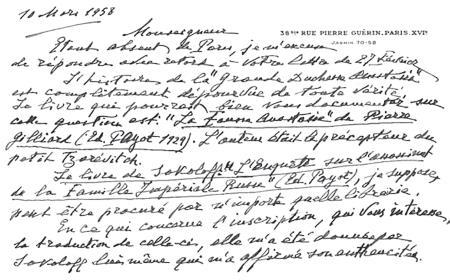 10 Mars 1958
38BIS RUE PIERRE GUÉRIN. PARIS. XVIe
JASMIN 70-58
Monseigneur
Étant absent de Paris, je m'excuse
de répondre avec retard à votre lettre du 27 Février
L'histoire de la "grande Duchesse Anastasie"
est complètement dépourvue de toute vérité.
Le livre qui pourrait bien vous documenter sur
cette question est: "La Fausse Anastasie" de Pierre
Gilliard (Ed. Payot 1929). L'auteur était le précepteur du
petit Tzarévitch.
Le livre de Sokoloff "L'Enquête sur l'assassinat
de la Famille Impériale Russe" (Ed. Payot), je suppose,
peut être procuré par n'importe quelle librairie.
En ce qui concerne l'inscription, qui vous intéresse,
la traduction de celle-ci, elle m'a été donnée par
Sokoloff lui même qui m'a affirmé son authenticité.